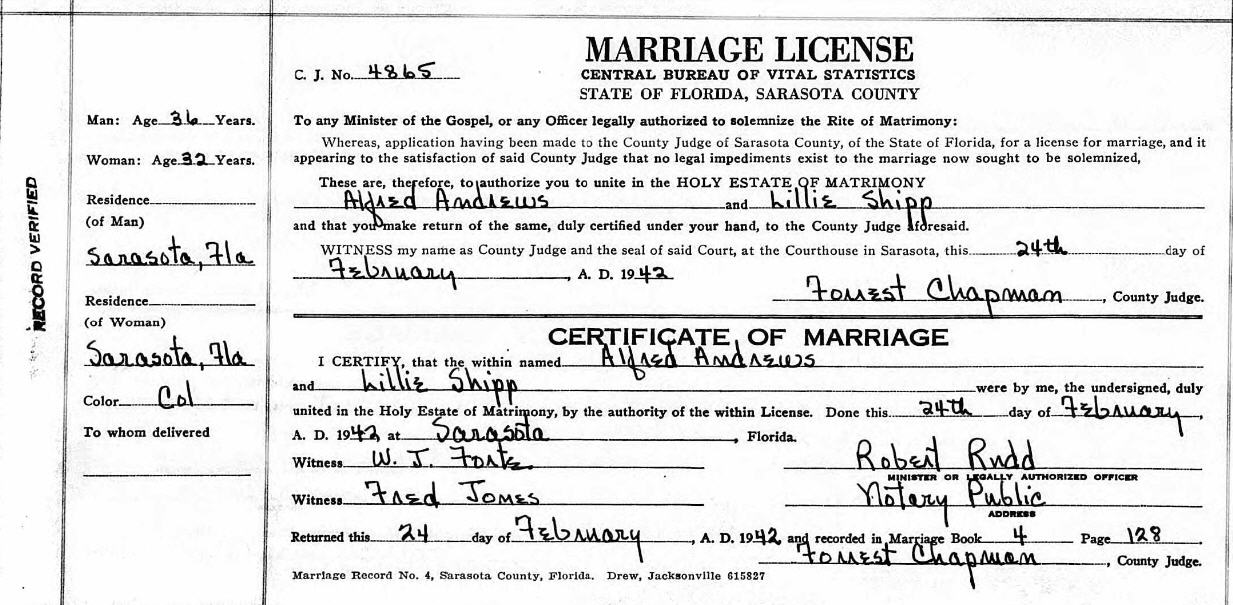 MARRIAGE LICENSE
C. J. No. 4865
CENTRAL BUREAU OF VITAL STATISTICS
STATE OF FLORIDA, SARASOTA COUNTY
RECORD VERIFIED
Man: Age 36 Years.
Woman: Age 32 Years.
Residence
(of Man)
Sarasota, Fla
Residence
(of Woman)
Sarasota, Fla
Color Col
To whom delivered
To any Minister of the Gospel, or any Officer legally authorized to solemnize the Rite of Matrimony:
Whereas, application having been made to the County Judge of Sarasota County, of the State of Florida, for a license for marriage, and it
appearing to the satisfaction of said County Judge that no legal impediments exist to the marriage now sought to be solemnized,
These are, therefore, to authorize you to unite in the HOLY ESTATE OF MATRIMONY
Alfred Andrews and Lillie Shipp
and that you make return of the same, duly certified under your hand, to the County Judge aforesaid.
WITNESS my name as County Judge and the seal of said Court, at the Courthouse in Sarasota, this 24th day of
February, A. D. 1942
Forrest Chapman, County Judge.
CERTIFICATE OF MARRIAGE
I CERTIFY, that the within named Alfred Andrews
and Lillie Shipp were by me, the undersigned, duly
united in the Holy Estate of Matrimony, by the authority of the within License. Done this 24th day of February,
A. D. 1942 at Sarasota, Florida.
Witness W. J. Forte Robert Rudd
MINISTER OR LEGALLY AUTHORIZED OFFICER
Witness Fred Jomes Notary Public
ADDRESS
Returned this 24 day of February, A. D. 1942 and recorded in Marriage Book 4 Page 128.
Forrest Chapman, County Judge.
Marriage Record No. 4, Sarasota County, Florida. Drew, Jacksonville 615827